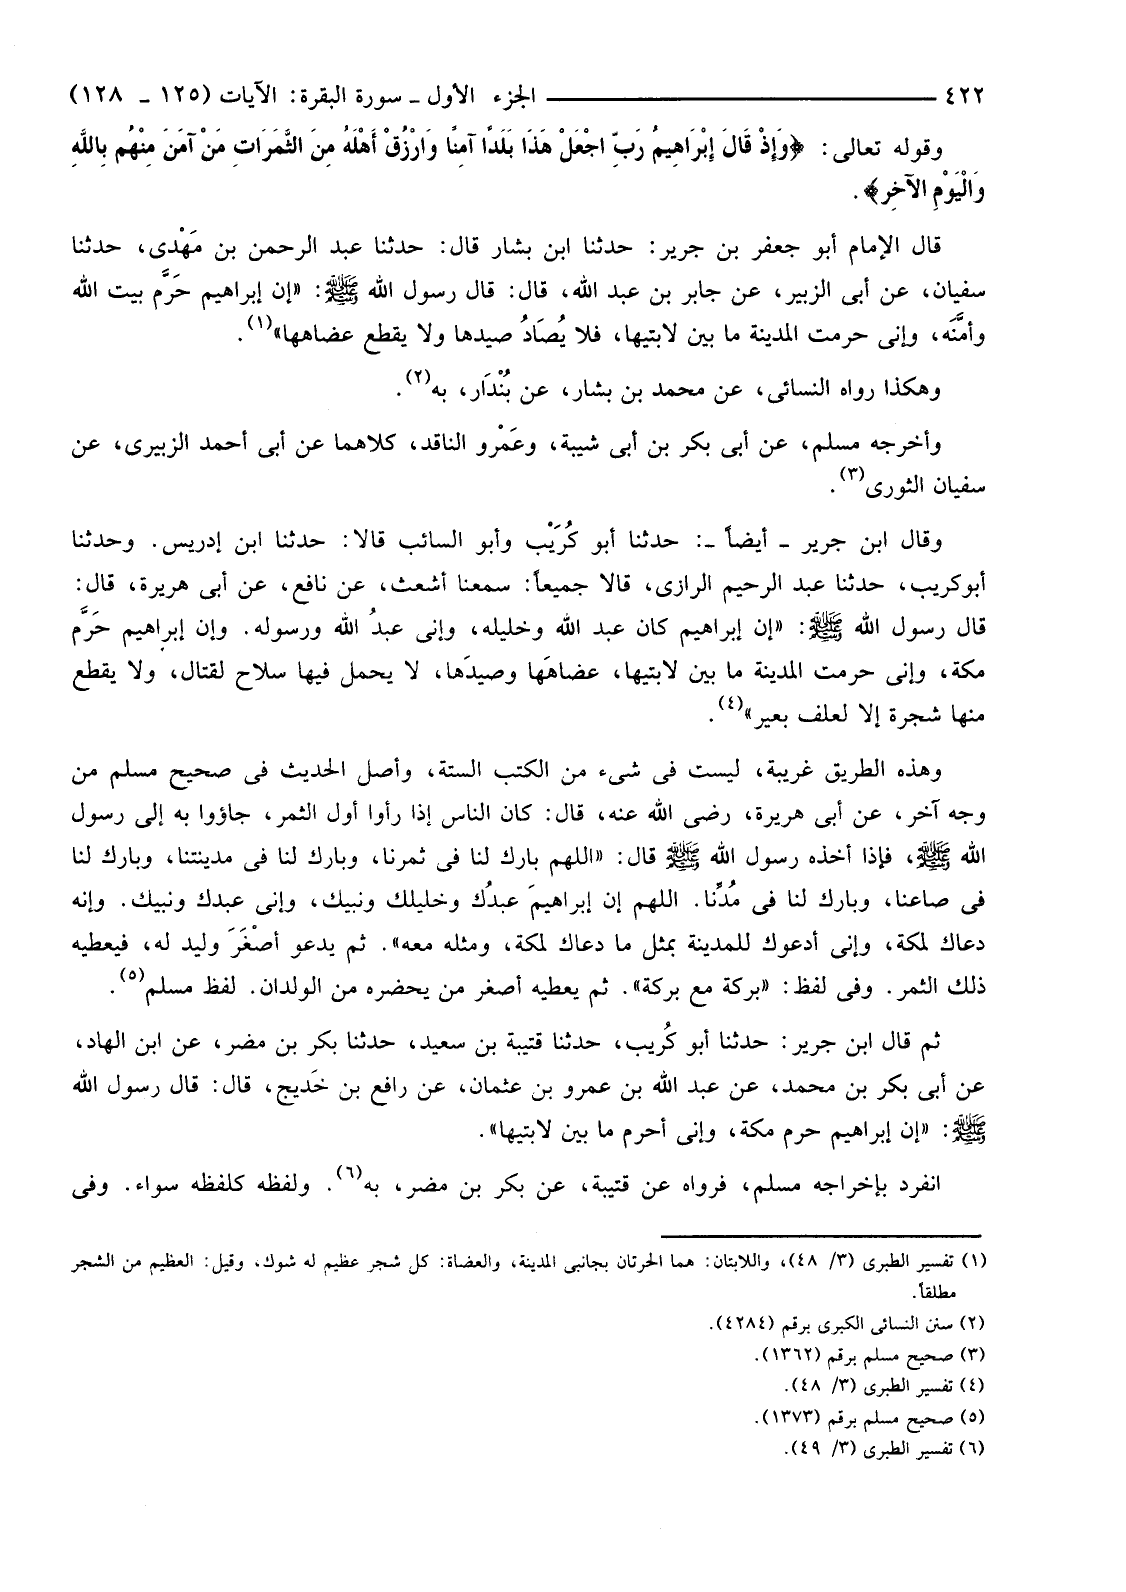 ٤٢٢ ـــــــ الجزء الأول ـ سورة البقرة: الآيات (١٢٥ ـ ١٢٨)
وقوله تعالى: ﴿وَإِذْ قَالَ إِبْرَاهِيمُ رَبِّ اجْعَلْ هَذَا بَلَدًا آمِنًا وَارْزُقْ أَهْلَهُ مِنَ الثَّمَرَاتِ مَنْ آمَنَ مِنْهُم بِاللَّهِ
وَالْيَوْمِ الآخِرِ﴾.
قال الإمام أبو جعفر بن جرير: حدثنا ابن بشار قال: حدثنا عبد الرحمن بن مَهْدى، حدثنا
سفيان، عن أبى الزبير، عن جابر بن عبد الله، قال: قال رسول الله ﷺ: «إن إبراهيم حَرَّم بيت الله
وأمَّنَه، وإنى حرمت المدينة ما بين لابتيها، فلا يُصَادُ صيدها ولا يقطع عضاهها»(١).
وهكذا رواه النسائى، عن محمد بن بشار، عن بُنْدَار، به(٢).
وأخرجه مسلم، عن أبى بكر بن أبى شيبة، وعَمْرو الناقد، كلاهما عن أبى أحمد الزبيرى، عن
سفيان الثورى(٣).
وقال ابن جرير ـ أيضاً ـ: حدثنا أبو كُرَيْب وأبو السائب قالا: حدثنا ابن إدريس. وحدثنا
أبوكريب، حدثنا عبد الرحيم الرازى، قالا جميعاً: سمعنا أشعث، عن نافع، عن أبى هريرة، قال:
قال رسول الله ﷺ: «إن إبراهيم كان عبد الله وخليله، وإنى عبدُ الله ورسوله. وإن إبراهيم حَرَّم
مكة، وإنى حرمت المدينة ما بين لابتيها، عضاهَها وصيدَها، لا يحمل فيها سلاح لقتال، ولا يقطع
منها شجرة إلا لعلف بعير»(٤).
وهذه الطريق غريبة، ليست فى شىء من الكتب الستة، وأصل الحديث فى صحيح مسلم من
وجه آخر، عن أبى هريرة، رضى الله عنه، قال: كان الناس إذا رأوا أول الثمر، جاؤوا به إلى رسول
الله ﷺ، فإذا أخذه رسول الله ﷺ قال: «اللهم بارك لنا فى ثمرنا، وبارك لنا فى مدينتنا، وبارك لنا
فى صاعنا، وبارك لنا فى مُدِّنا. اللهم إن إبراهيمَ عبدُك وخليلك ونبيك، وإنى عبدك ونبيك. وإنه
دعاك لمكة، وإنى أدعوك للمدينة بمثل ما دعاك لمكة، ومثله معه». ثم يدعو أصْغَرَ وليد له، فيعطيه
ذلك الثمر. وفى لفظ: «بركة مع بركة». ثم يعطيه أصغر من يحضره من الولدان. لفظ مسلم(٥).
ثم قال ابن جرير: حدثنا أبو كُريب، حدثنا قتيبة بن سعيد، حدثنا بكر بن مضر، عن ابن الهاد،
عن أبى بكر بن محمد، عن عبد الله بن عمرو بن عثمان، عن رافع بن خَديج، قال: قال رسول الله
ﷺ: «إن إبراهيم حرم مكة، وإنى أحرم ما بين لابتيها».
انفرد بإخراجه مسلم، فرواه عن قتيبة، عن بكر بن مضر، به(٦). ولفظه كلفظه سواء. وفى
(١) تفسير الطبرى (٣/ ٤٨)، واللابتان: هما الحرتان بجانبى المدينة، والعضاة: كل شجر عظيم له شوك، وقيل: العظيم من الشجر
مطلقاً.
(٢) سنن النسائى الكبرى برقم (٤٢٨٤).
(٣) صحيح مسلم برقم (١٣٦٢).
(٤) تفسير الطبرى (٣/ ٤٨).
(٥) صحيح مسلم برقم (١٣٧٣).
(٦) تفسير الطبرى (٣/ ٤٩).